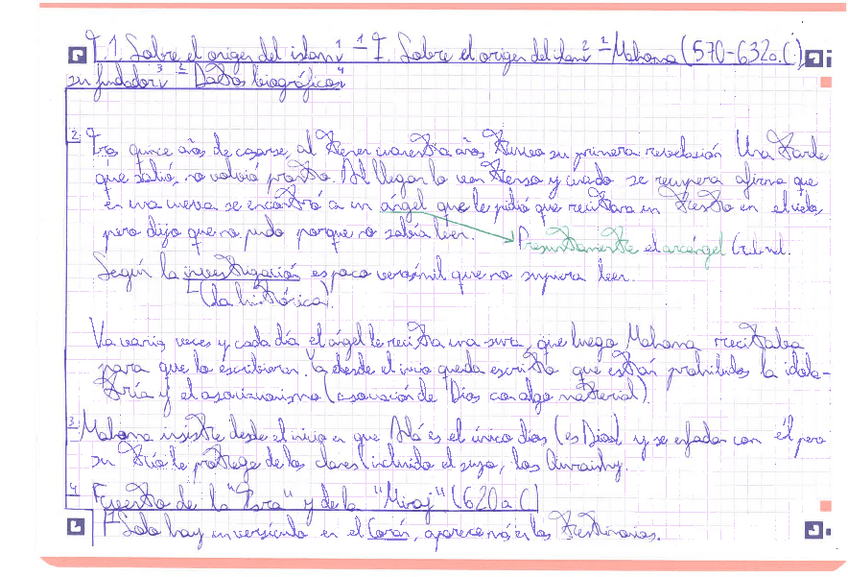 T.1. Sobre el origen del islam¹ – I. Sobre el origen del islam² – Mahoma (570-632 a.C.)
su fundador³ – Datos biográficos⁴
2. Tras quince años de casarse, al tener cuarenta años, tuvo su primera revelación. Una tarde
que salió, no volvió pronto. Al llegar lo ven tenso y cuando se recupera afirma que
en una cueva se encontró a un ángel que le pidió que recitara un texto en el cielo,
pero dijo que no pudo porque no sabía leer.
Presuntamente el arcángel Gabriel.
Según la investigación es poco verosímil que no supiera leer.
(la histórica).
Va varias veces y cada día el ángel le recita una sura, que luego Mahoma recitaba
para que lo escribieran. Ya desde el inicio queda escrito que están prohibidos la idola-
tría y el asociacionismo (asociación de Dios con algo material).
3. Mahoma insiste desde el inicio en que Alá es el único dios (es Dios) y se enfadan con él pero
su tío le protege de los clanes (incluido el suyo, los Quraishy.
4. Evento de la "Isra" y de la "Miraj" (620 a.C)
1. Solo hay un versículo en el Corán, aparece en los